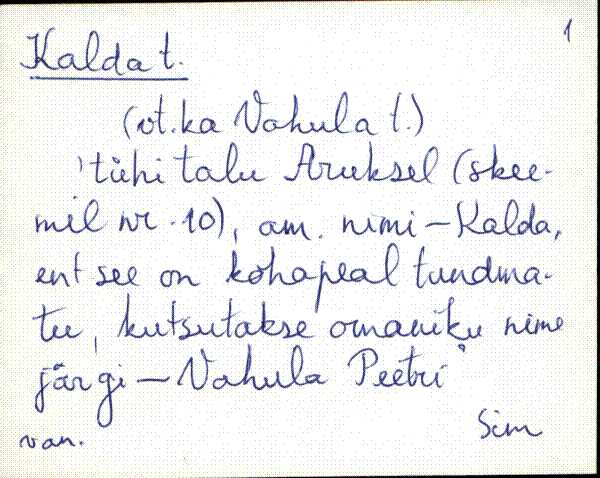 1
Kalda t.
(vt. ka Vahula t.)
'tühi talu Aruksel (skee-
mil nr. 10), am. nimi – Kalda,
ent see on kohapeal tundma-
tu, kutsutakse omaniku nime
järgi – Vahula Peetri
van. Sim